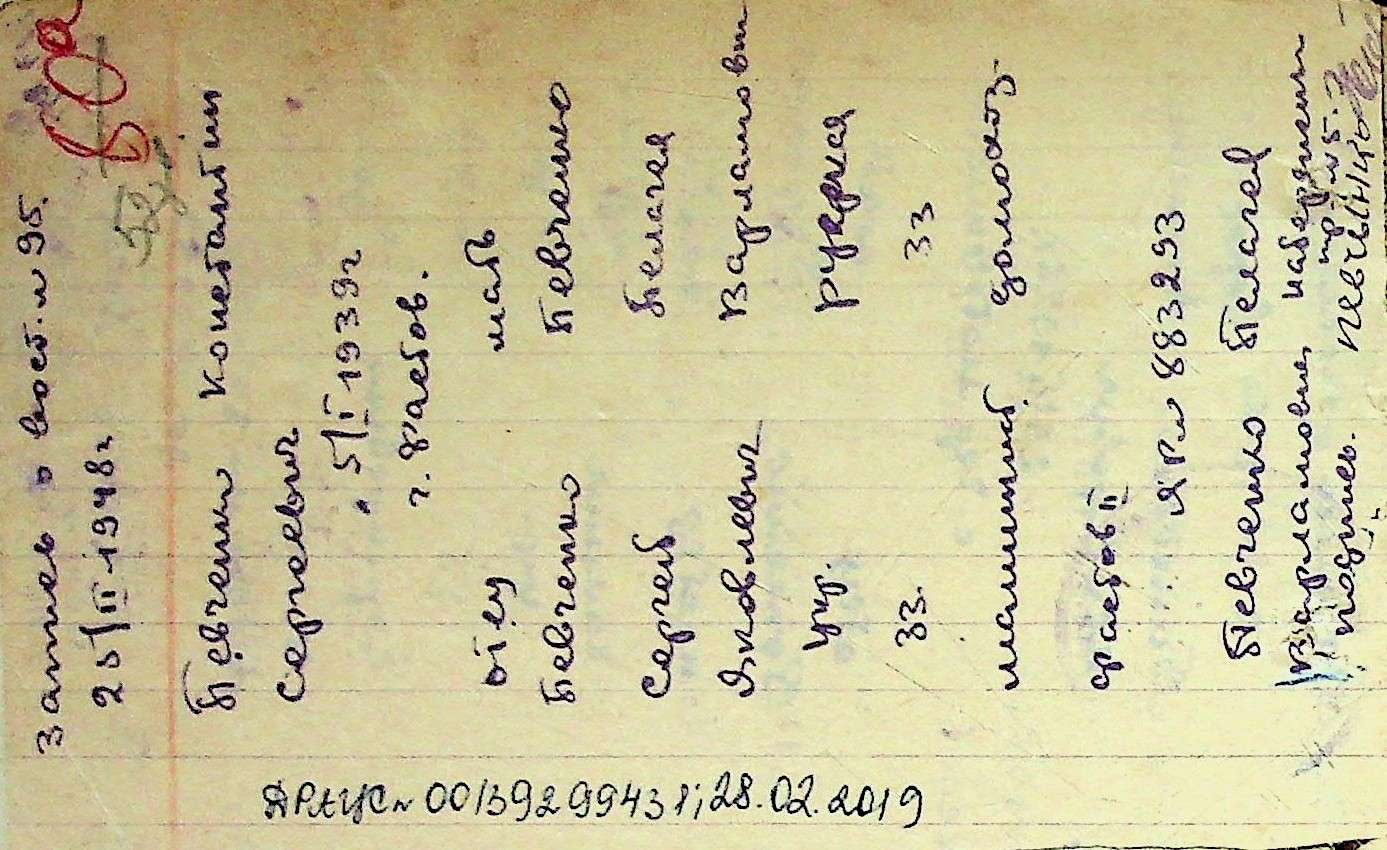 Запись о вост. № 95.
80а
25/II 1948г
Певченко Константин
Сергеевич
5/II 1939г
г. Фастов.
отец мать
Певченко Певченко
Сергей Пелагея
Яковлевич Варламовн
укр. русская
33. 33
машинист. домохоз.
Фастов II
ЯР № 883293
Певченко Пелагея
Варламовна, набережная
№ 5.
подпись. Певченко
АРАЦС № 00139299431; 28.02.2019